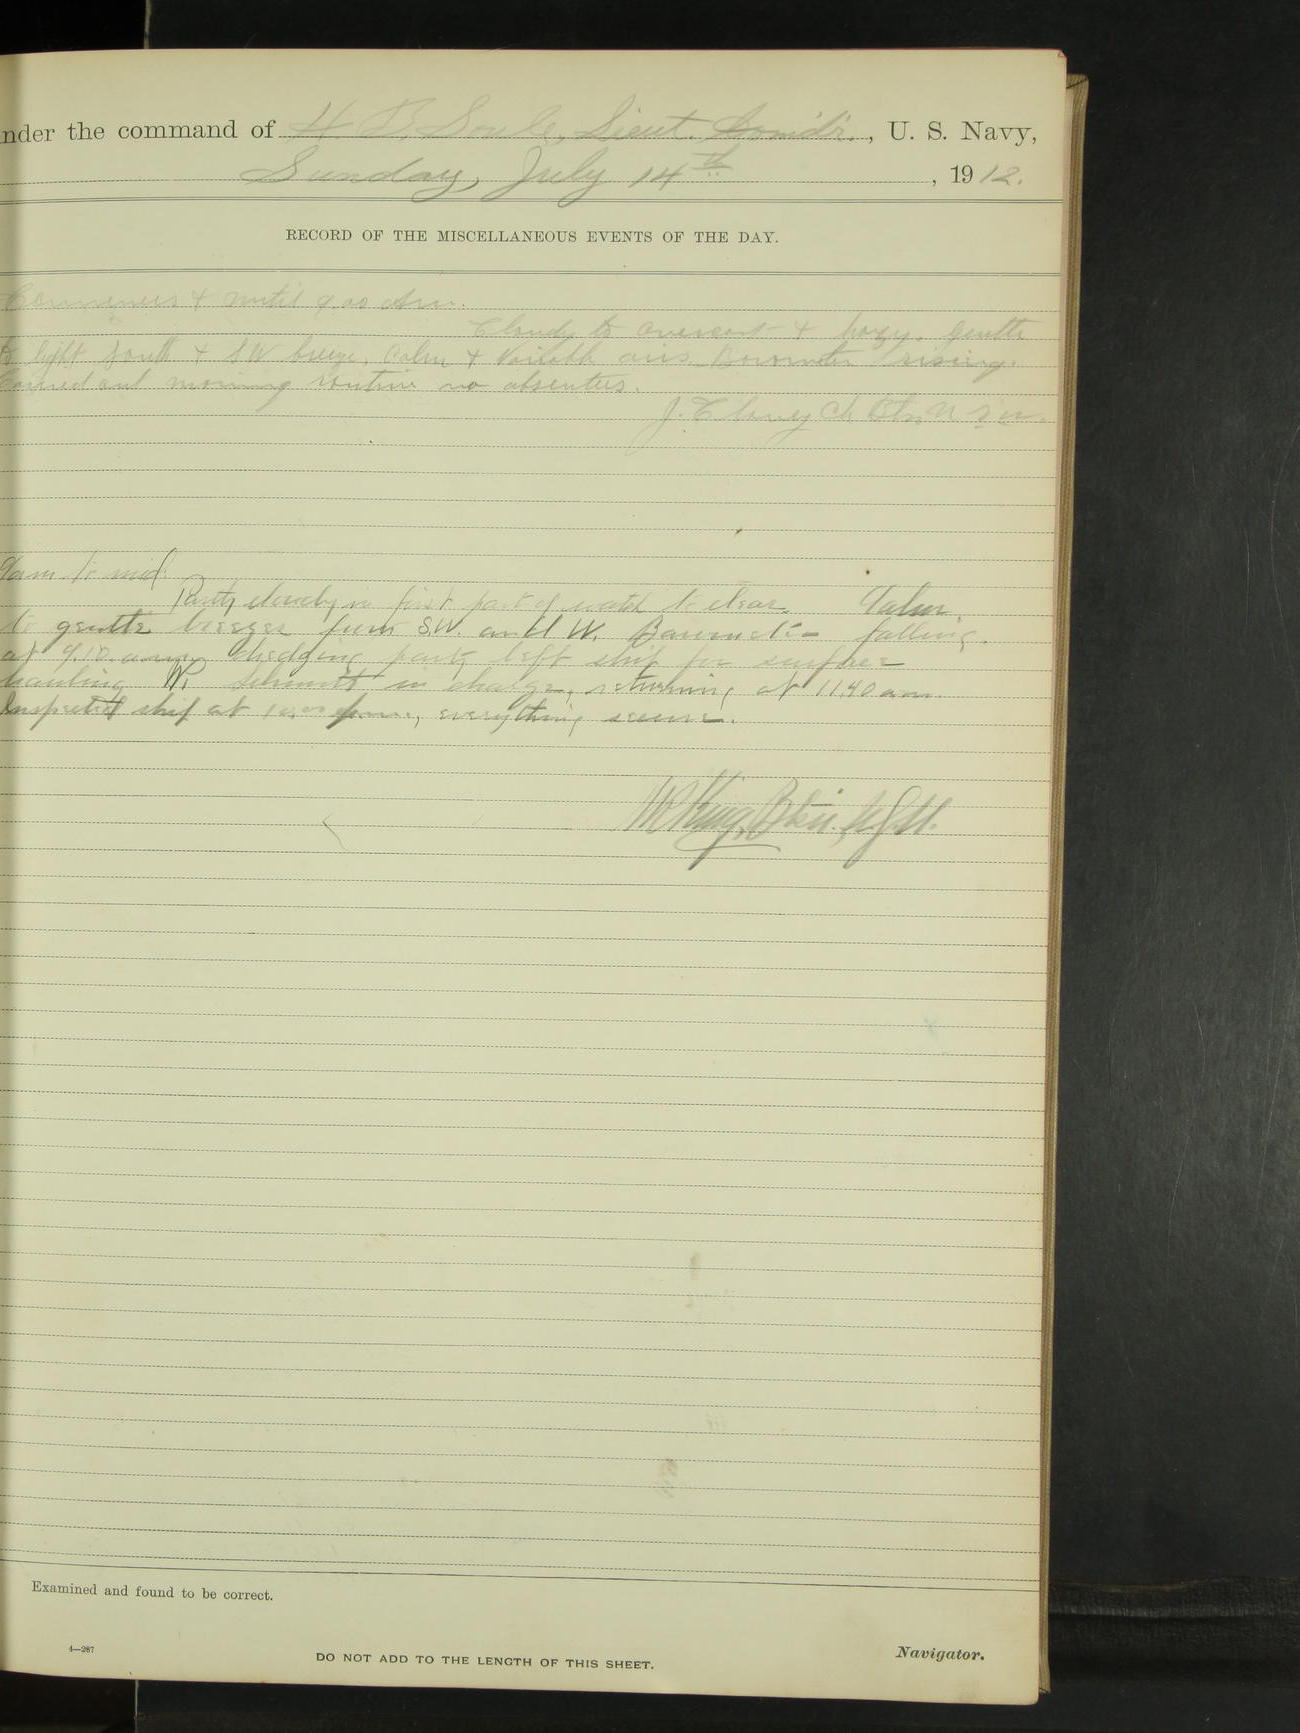 nder the command of H B. Soule, Lieut. Comd'r., U. S. Navy,
Sunday, July 14th, 1912.
RECORD OF THE MISCELLANEOUS EVENTS OF THE DAY.
Commences & until 9.00 Am.
Cloudy to overcast & hazy. Gentle
to light South & SW breeze. Calm & Variable airs. Barometer rising.
Carried out morning routine no absentees.
J. Clancy Ch. Btn U S N.
9am to mid.
Partly cloudy in first part of watch to clear. Calm
to gentle breezes from S.W. and W. Barometer falling.
at 9.10 a.m. dredging party left ship for surface
hauling W. Schmitt in charge, returning at 11.40 a.m.
Inspected ship at 10.00 p.m., everything secure.
W King, Btsn. U.S.N.
Examined and found to be correct.
4—267
DO NOT ADD TO THE LENGTH OF THIS SHEET.
Navigator.